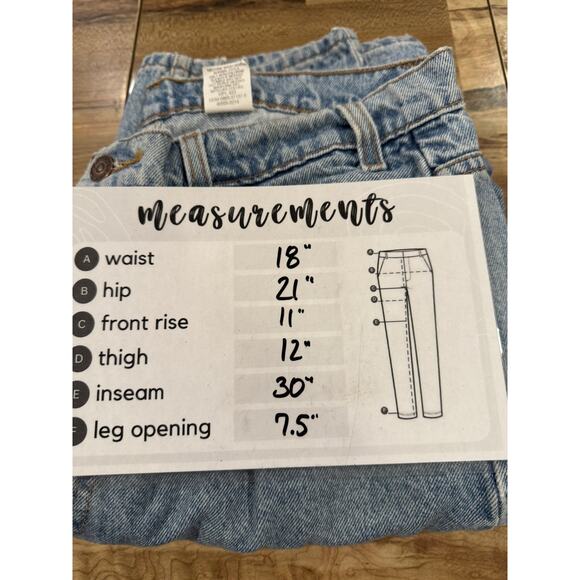 measurements
A waist 18"
B hip 21"
C front rise 11"
D thigh 12"
E inseam 30"
F leg opening 7.5"